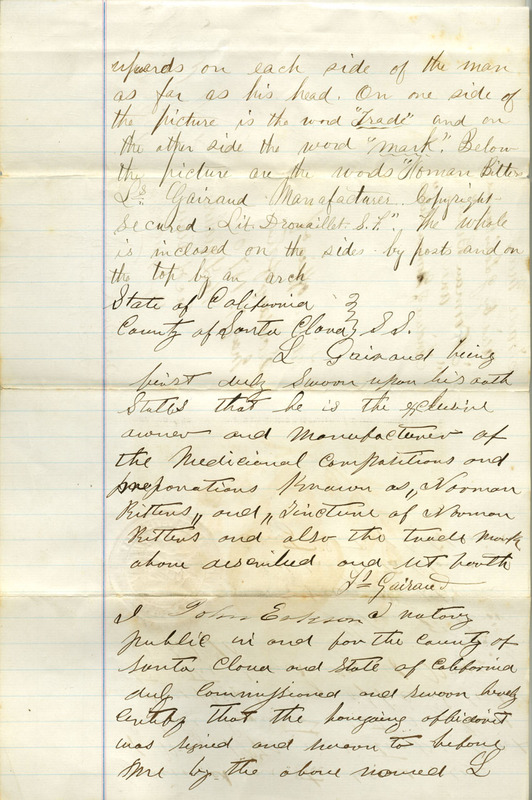 upwards on each side of the man
as far as his head. On one side of
the picture is the word "Trade" and on
the other side the word "mark". Below
the picture are the words "Woman Bitters
Ls. Gairaud Manafacturer. Copyright
Secured. Lit. Drouaillet. S.F." The whole
is inclosed on the sides by posts and on
the top by an arch
State of California }
County of Santa Clara } S.S.
L Gairaud being
first duly sworn upon his oath
States that he is the exclusive
owner and manufacturer of
the Medicional Compotitions and
preparations known as "Woman
Bitters" and "Tincture of Woman
Bitters and also the trade mark
above described and set forth
Ls Gairaud
I John a notary
public in and for the County of
Santa Clara and State of California
duly Commissioned and sworn hereby
certify that the foregoing affidavit
was signed and sworn to before
me by the above named L